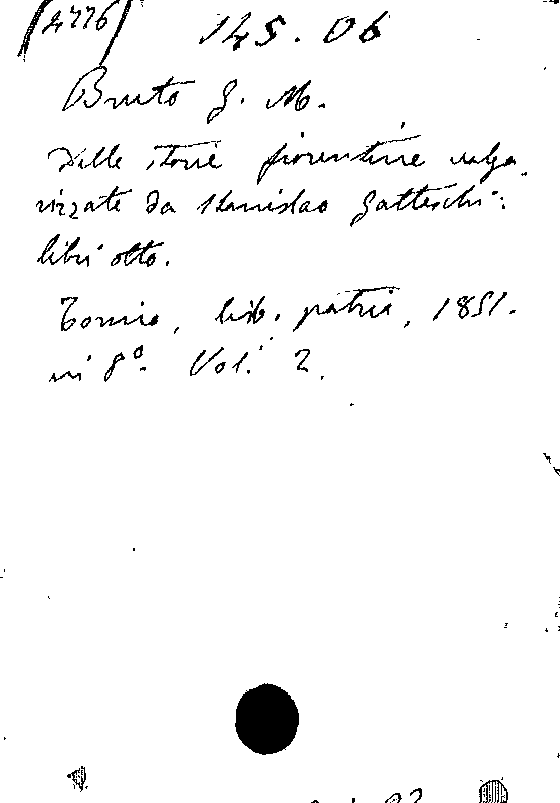 (4776) 145.06
Bruto G. M.
Delle storie fiorentine volga
rizzate da Stanislao Gatteschi:
libri otto.
Torino, lib. patria, 1851.
in 8º. Vol. 2.